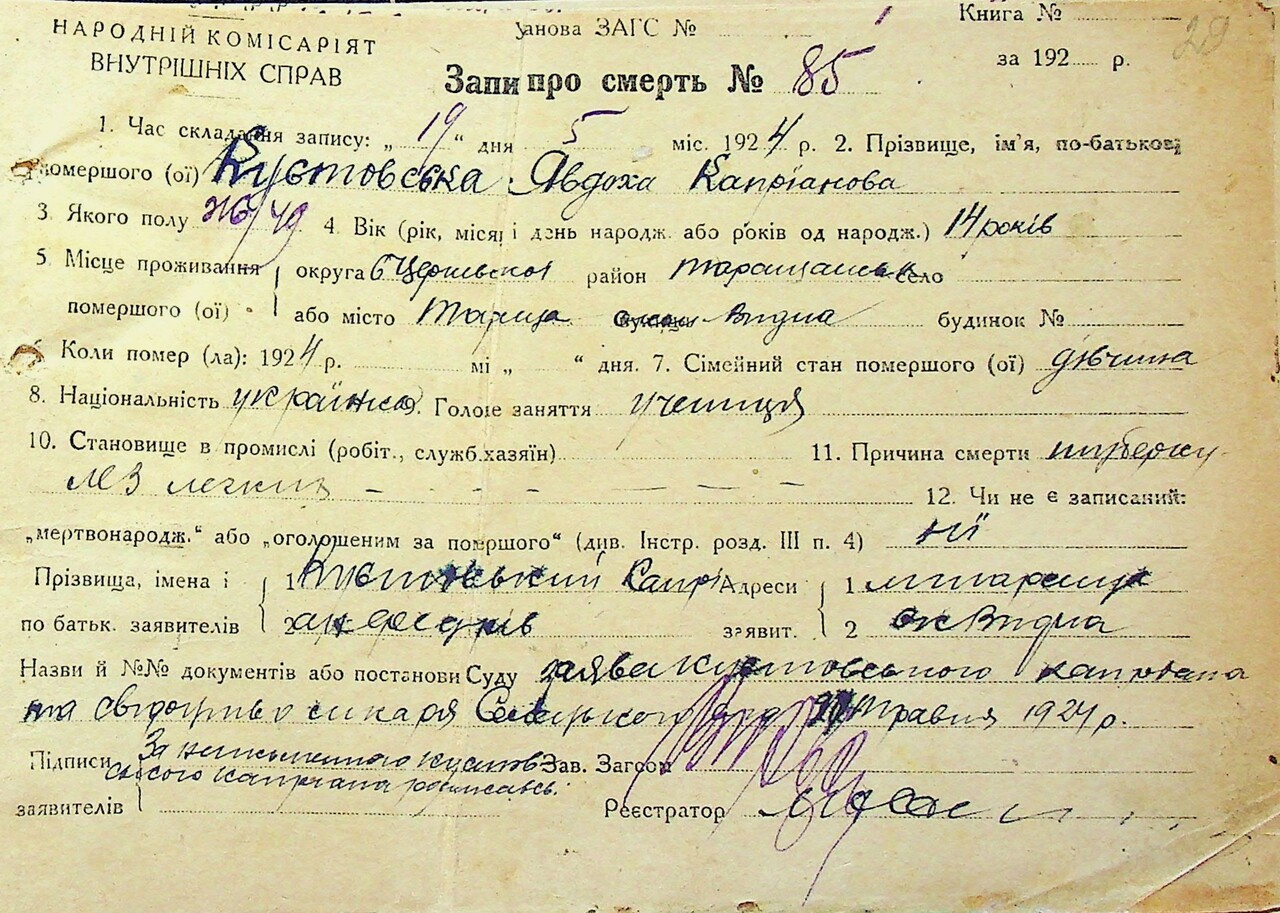 Книга №
НАРОДНІЙ КОМІСАРІЯТ
ВНУТРІШНІХ СПРАВ
Установа ЗАГС №
29
за 192 р.
Запис про смерть № 85
1. Час складання запису: „ 19 “ дня 5 міс. 1924 р. 2. Прізвище, ім'я, по-батькові
помершого (ої) Кустовська Явдоха Капріанова
3. Якого полу 4. Вік (рік, місяц і день народж. або років од народж.) 14 років
5. Місце проживання округа район Таращанськ село
помершого (ої) або місто Тараща Видна будинок №
6. Коли помер (ла): 1924 р. мі „ “ дня. 7. Сімейний стан помершого (ої) дівчина
8. Національність українка 9. Головне заняття учениця
10. Становище в промислі (робіт., служб. хазяїн) 11. Причина смерти туберку-
лез легких – – – – – – 12. Чи не є записаний:
„мертвонародж.“ або „оголошеним за помершого“ (див. Інстр. розд. III п. 4) ні
Прізвища, імена і 1 Кустовський Капрі Адреси 1 м Тараща
по батьк. заявителів 2 заявит. 2 Видна
Назви й №№ документів або постанови Суду заява Кустовського Капріана
та лікаря травня 1924 р.
Підписи За неписьменного Кустов Зав. Загсом
ського Капріана розписавсь
заявителів Реєстратор